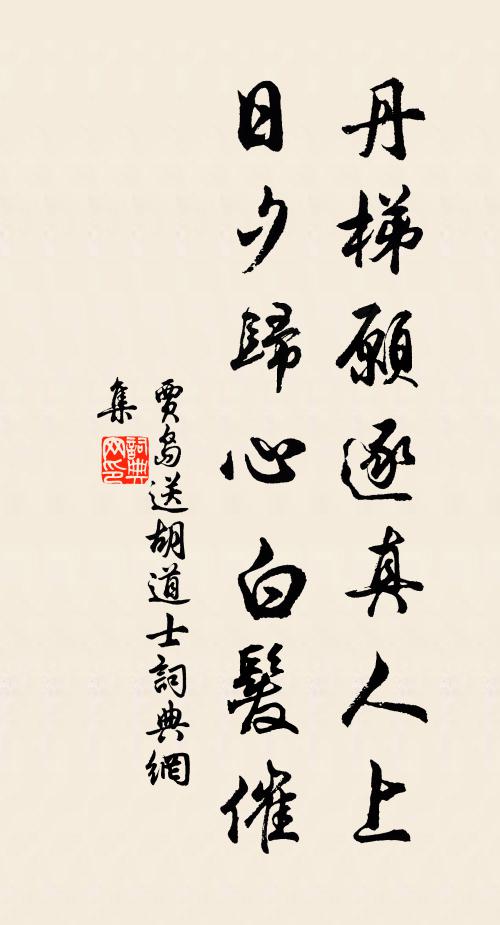 丹梯願逐真人上
日夕歸心白髮催
賈島送胡道士詞典網
集
詞典
网印